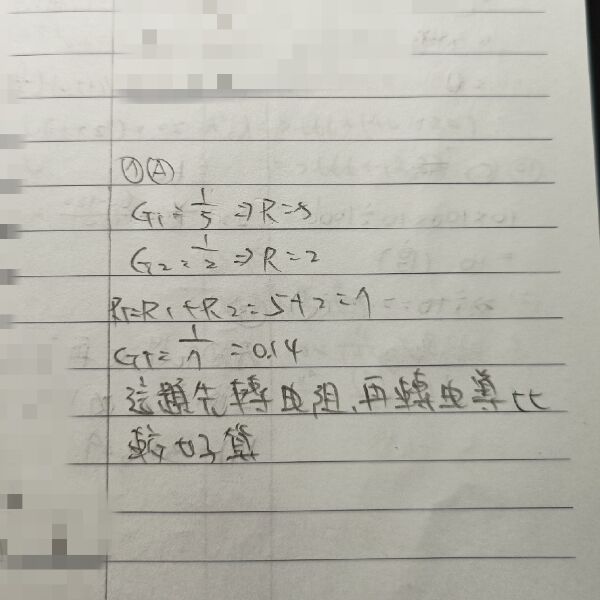 ⑦Ⓐ
G₁=1/5 ⇒R=5
G₂=1/2 ⇒R=2
RT=R₁+R₂=5+2=7
GT=1/7=0.14
這題先轉电阻,再轉电導比
較好算